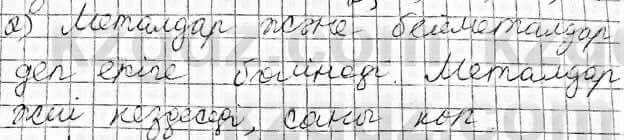 а) Металдар және бейметалдар
деп екіге бөлінеді. Металдар
жиі кездеседі, саны көп.